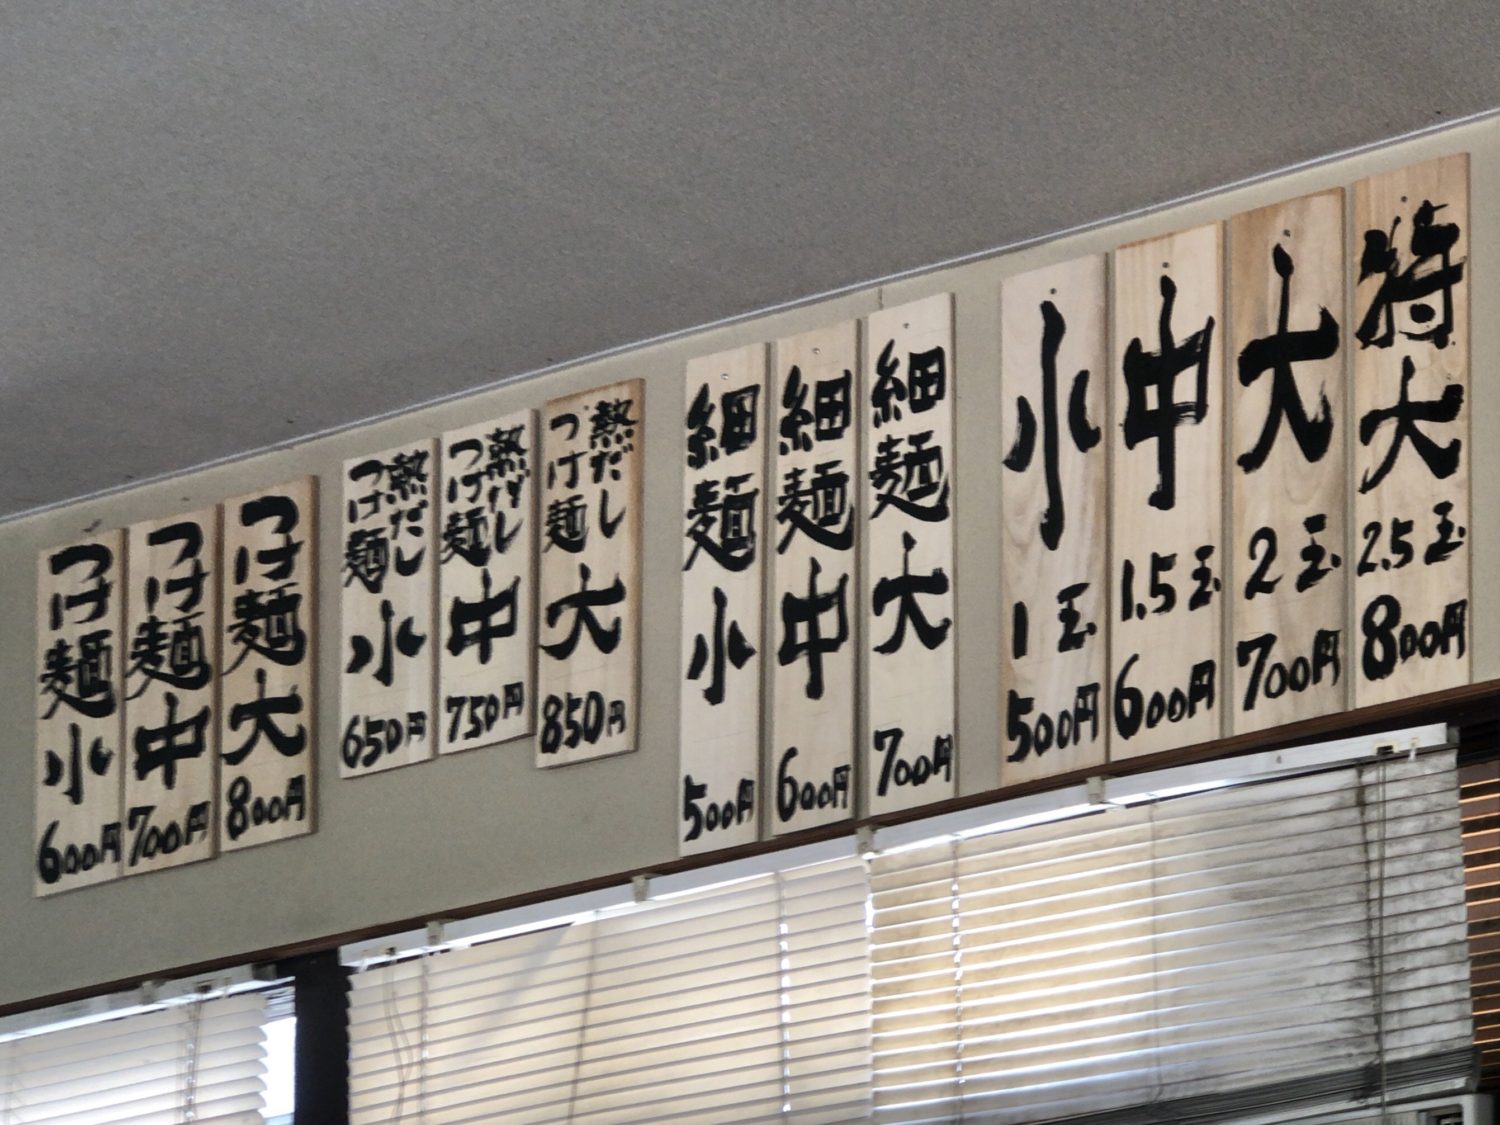 つけ麺小
600円
つけ麺中
700円
つけ麺大
800円
熱だし
つけ麺
小
650円
熱だし
つけ麺
中
750円
熱だし
つけ麺
大
850円
細麺小
500円
細麺中
600円
細麺大
700円
小
1玉
500円
中
1.5玉
600円
大
2玉
700円
特大
2.5玉
800円